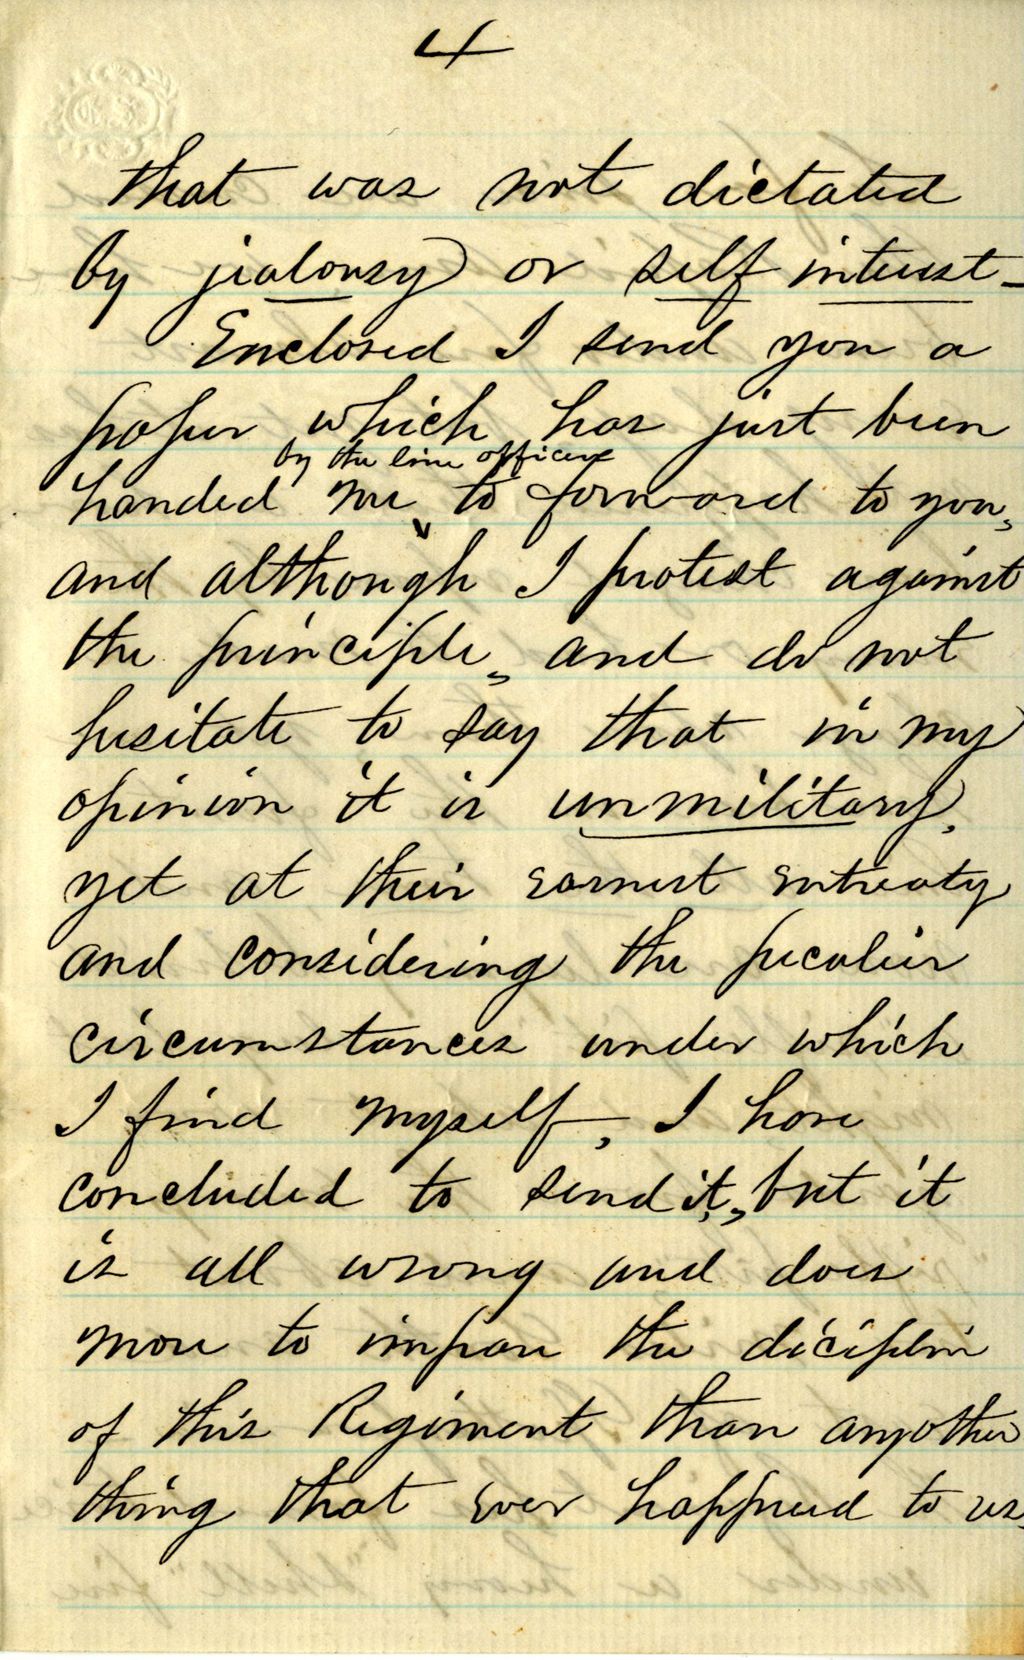 4
that was not dictated
by jealousy or self interest_
Enclosed I send you a
paper which has just been
by the line officers
handed me to forward to you,
and although I protest against
the principle, and do not
hesitate to say that in my
opinion it is unmilitary,
yet at their earnest entreaty
and considering the peculier
circumstances under which
I find myself, I have
concluded to send it, but it
is all wrong and does
more to impare the diciplin
of this Regiment than anyother
thing that ever happened to us.